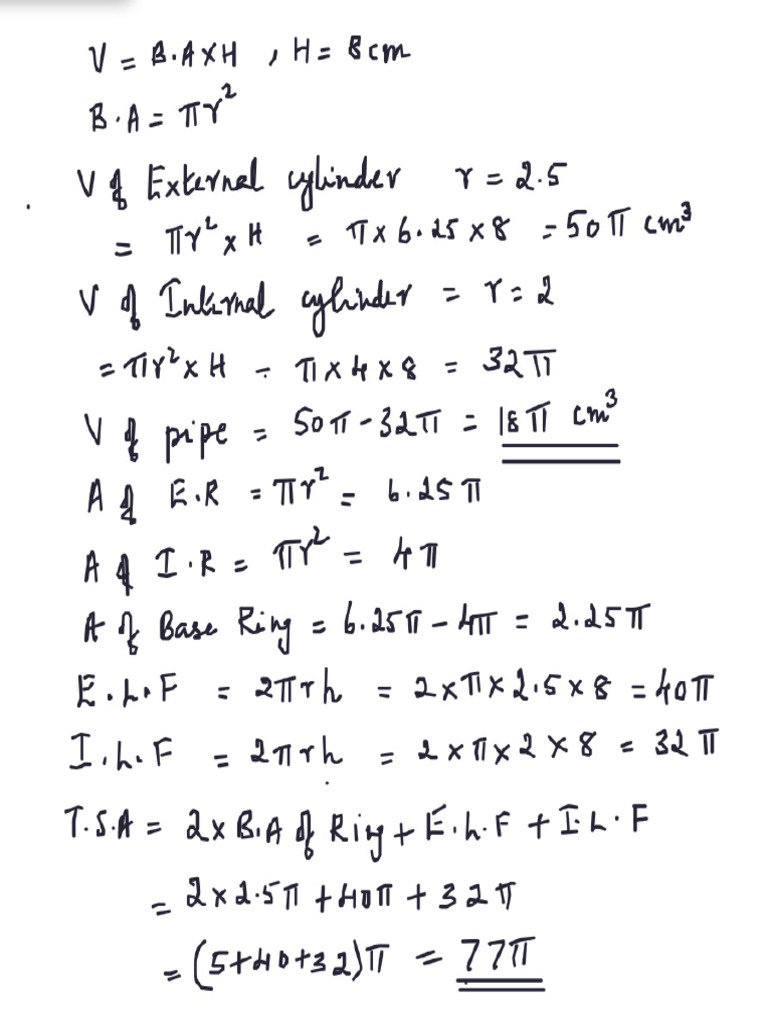 V = B.A×H , H = 8cm
B.A = πr²
V of External cylinder r = 2.5
= πr² × H = π × 6.25 × 8 = 50π cm³
V of Internal cylinder = r = 2
= πr² × H = π × 4 × 8 = 32π
V of pipe = 50π - 32π = 18π cm³
A of E.R = πr² = 6.25π
A of I.R = πr² = 4π
A of Base Ring = 6.25π - 4π = 2.25π
E.L.F = 2πrh = 2×π×2.5×8 = 40π
I.L.F = 2πrh = 2×π×2×8 = 32π
T.S.A = 2×B.A of Ring + E.L.F + I.L.F
= 2×2.5π + 40π + 32π
= (5+40+32)π = 77π